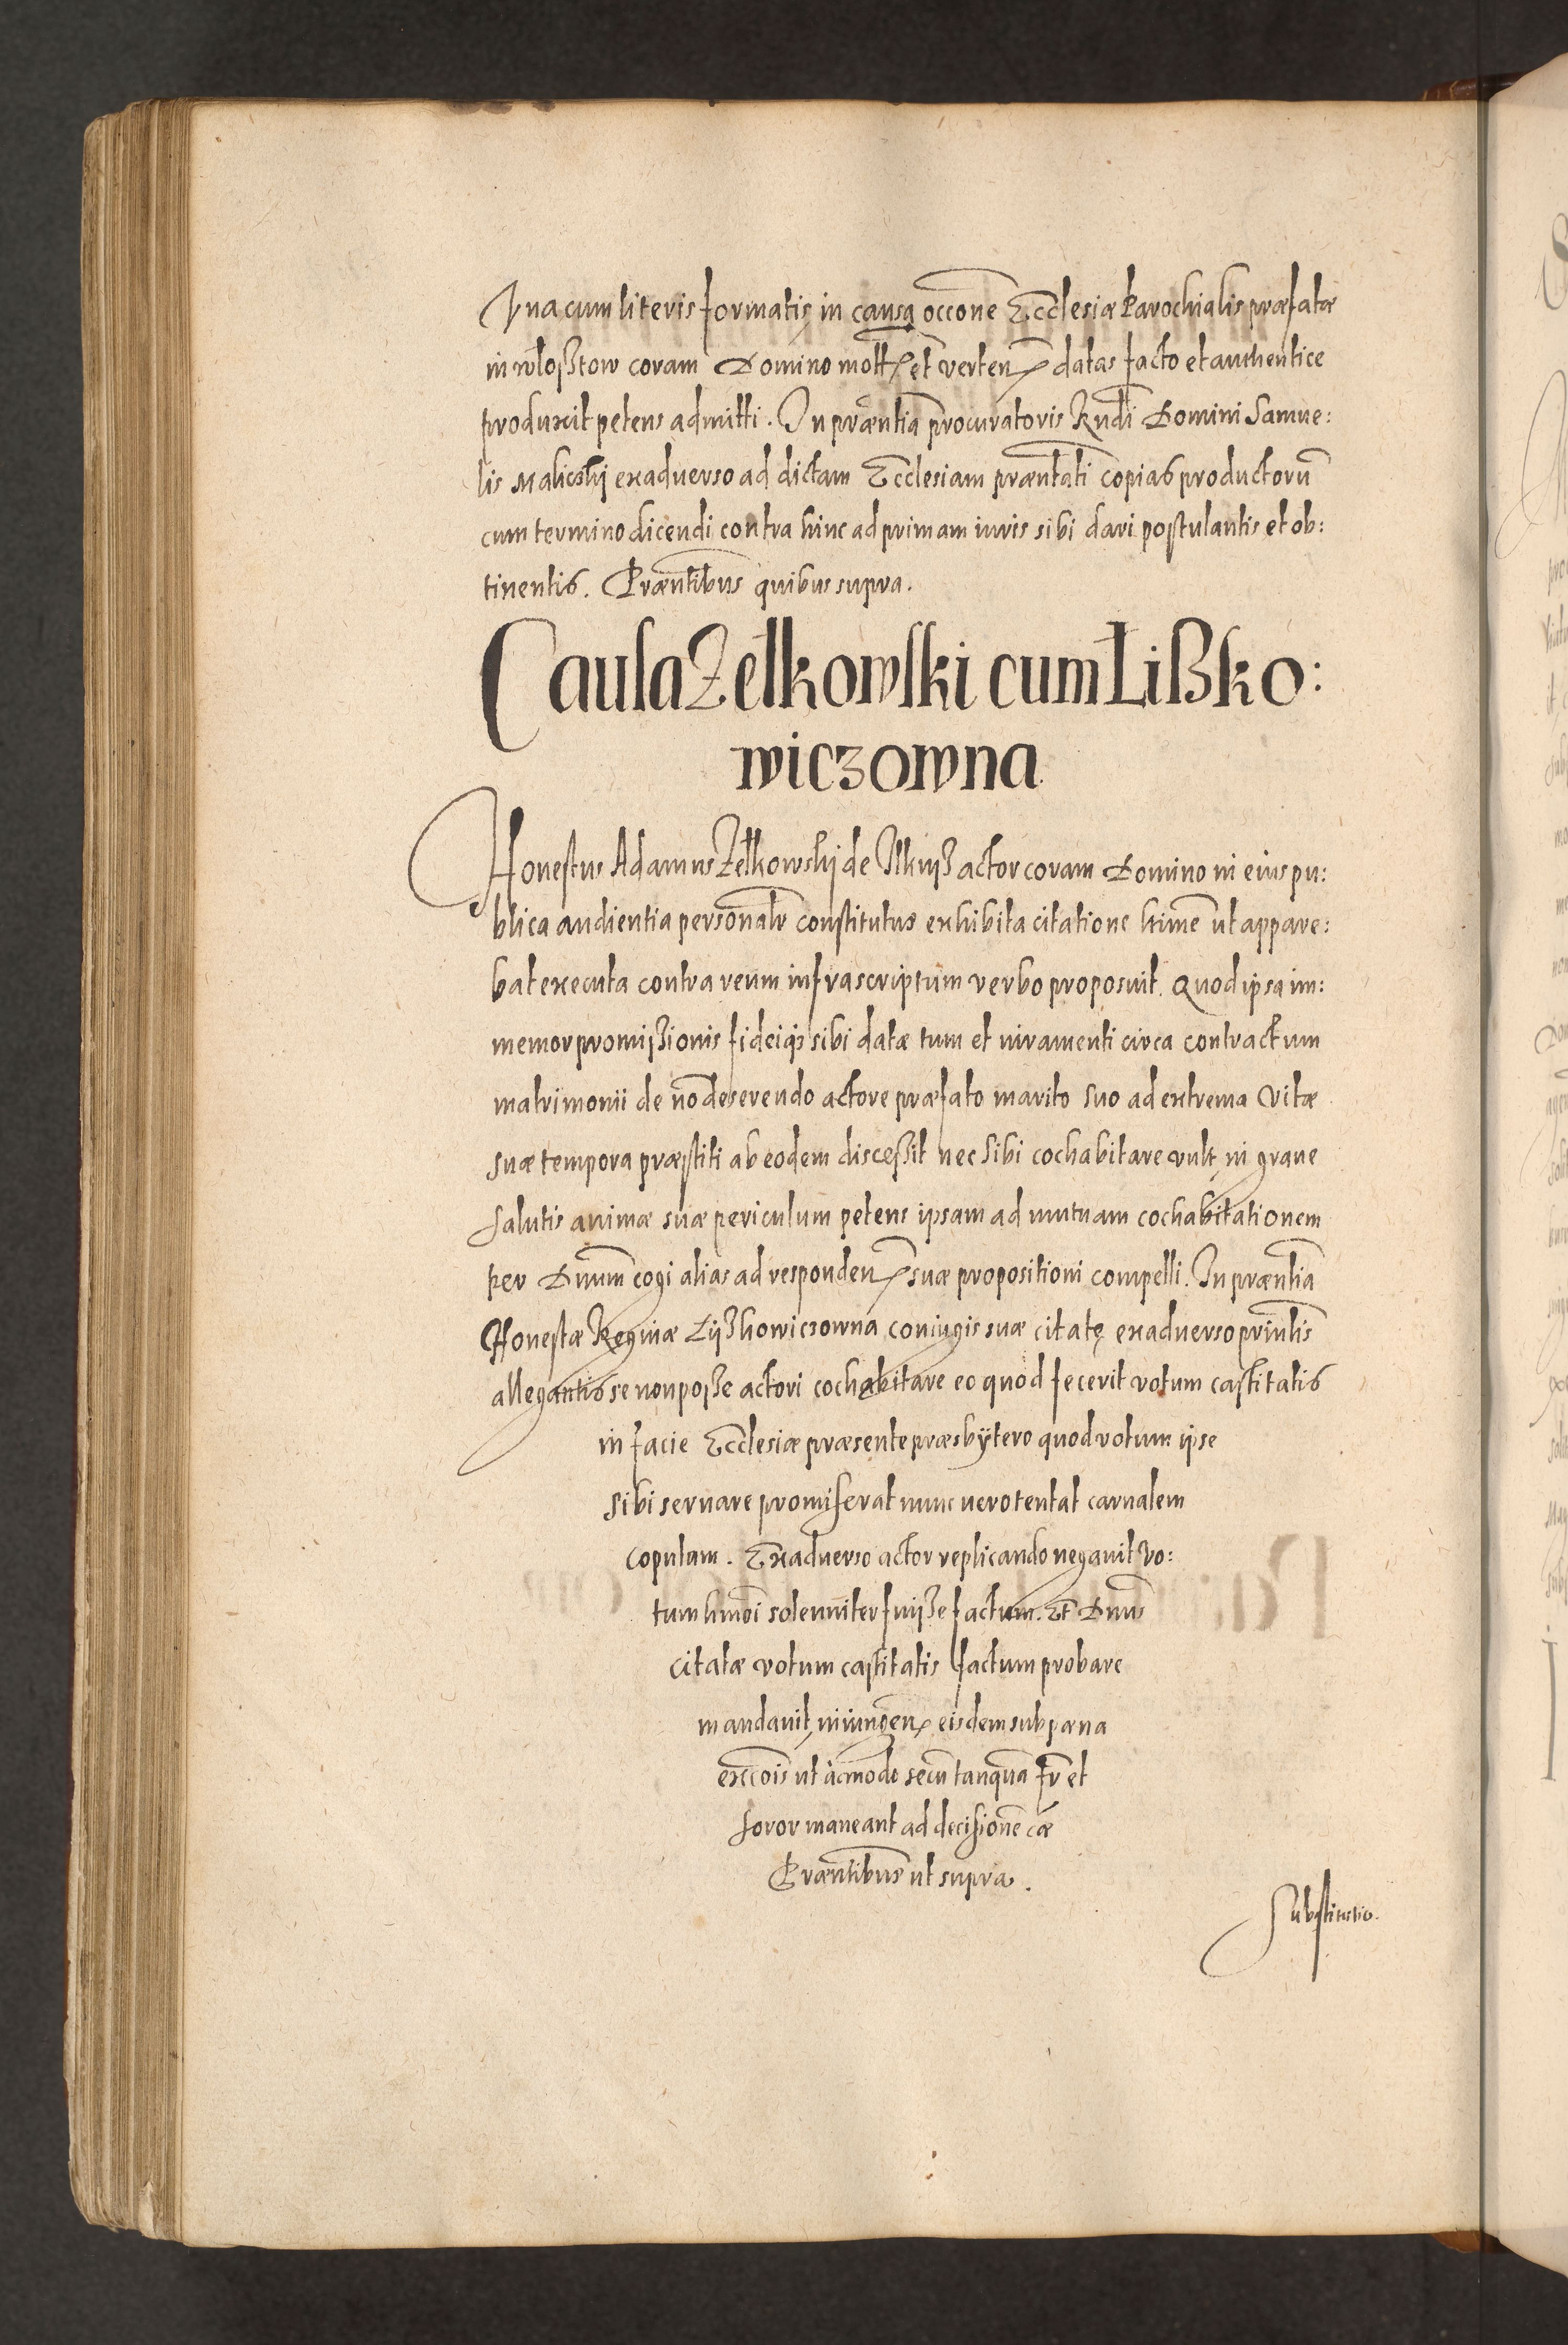 Vna cum literis formatis in causa occone Ecclesiæ Parochialis præfatæ
in Wloßtow coram Domino mott et verten datas facto et authentice
produxit petens admitti. In præntia procuratoris Rndi Domini Samue:
lis Malicskij exaduerso ad dictam Ecclesiam præntati copias productorũ
cum termino dicendi contra hinc ad primam iuris sibi dari postulantis et ob:
tinentis. Præntibus quibus supra.
Causa Zełkowski cum Lißko:
wiczowna
Honestus Adamus Zełkowskij de Ilkuß actor coram Domino in eius pu:
blica audientia personalr constitutus exhibita citatione ltime ut appare:
bat executa contra reum infrascriptum verbo proposuit. Quod ipsa im:
memor promißionis fideiq́ sibi datæ tum et iuramenti circa contractum
matrimonii de nõ deserendo actore præfato marito suo ad extrema vitæ
suæ tempora præstiti ab eodem disceßit nec sibi cochabitare vult, in graue
salutis animæ suæ periculum petens ipsam ad mutuam cochabitationem
per Dnum cogi alias ad responden suæ propositioni compelli. In præntia
Honestæ Reginæ Lijßkowiczowna coniugis suæ citatę exaduerso prinlis
allegantis se non poße actori cochabitare eo quod fecerit votum castitatis
in facie Ecclesiæ præsente præsbÿtero quod votum ipse
sibi seruare promiserat nunc uero tentat carnalem
copulam. Exaduerso actor replicando negauit vo:
tum hmõi solenniter fuiße factum. Et Dnus
citatæ votum castitatis factum probare
mandauit, iniungen eisdem sub pæna
excõis ut ac̃modo secũ tanquã fr et
soror maneant ad decisionẽ cæ
Præntibus ut supra.
Substitutio.